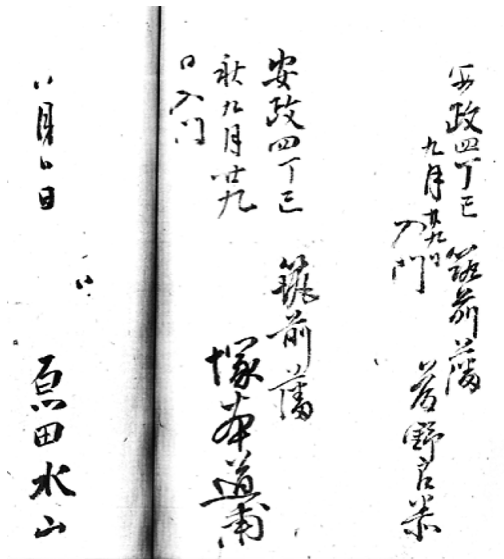 安政四丁巳
九月廿九日
入門
筑前藩
野
安政四丁巳
秋九月廿九
日入門
筑前藩
塚本道甫
〃月〃日
〃
原田水山